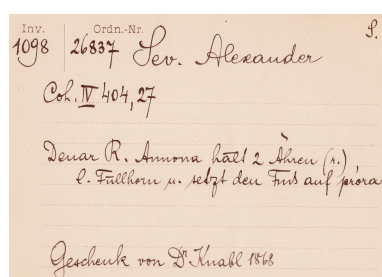 Inv. Ordn.-Nr. S.
1098 26837 Sev. Alexander
Coh. IV 404,27
Denar R. Annona hält 2 Ähren (r.)
l. Füllhorn u. setzt den Fuß auf prora
Geschenk von Dr Knabl 1868